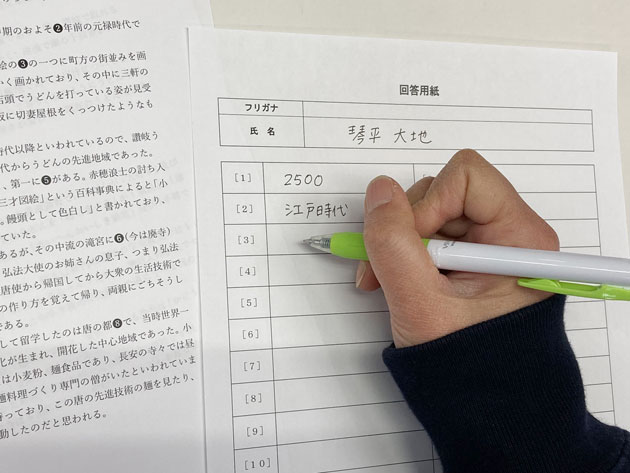 期のおよそ❷年前の元禄時代で
絵の❸の一つに町方の街並みを画
かく画かれており、その中に三軒の
店頭でうどんを打っている姿が見受
板に切妻屋根をくっつけたようなも
時代以降といわれているので、讃岐う
代からうどんの先進地域であった。
、第一に❺がある。赤穂浪士の討ち入
三才図絵」という百科事典によると「小
。饅頭として色白し」と書かれており、
ていた。
あるが、その中流の滝宮に❻(今は廃寺)
弘法大使のお姉さんの息子、つまり弘法
唐使から帰国してから大衆の生活技術で
の作り方を覚えて帰り、両親にごちそうし
である。
して留学したのは唐の都❽で、当時世界一
化が生まれ、開花した中心地域であった。小
は小麦粉、麺食品であり、長安の寺々では昼
麺料理づくり専門の僧がいたといわれていま
待っており、この唐の先進技術の麺を見たり、
動したのだと思われる。
回答用紙
フリガナ
氏 名 琴平 大地
[1] 2500
[2] 江戸時代
[3]
[4]
[5]
[6]
[7]
[8]
[9]
[10]